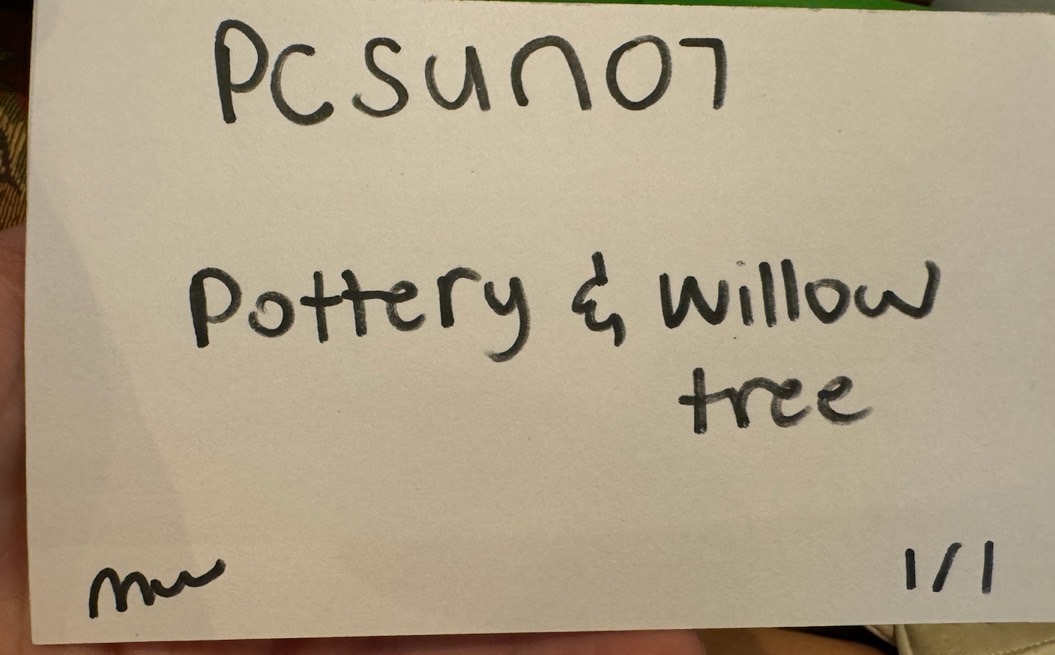 PCSun07
Pottery & Willow
tree
1/1